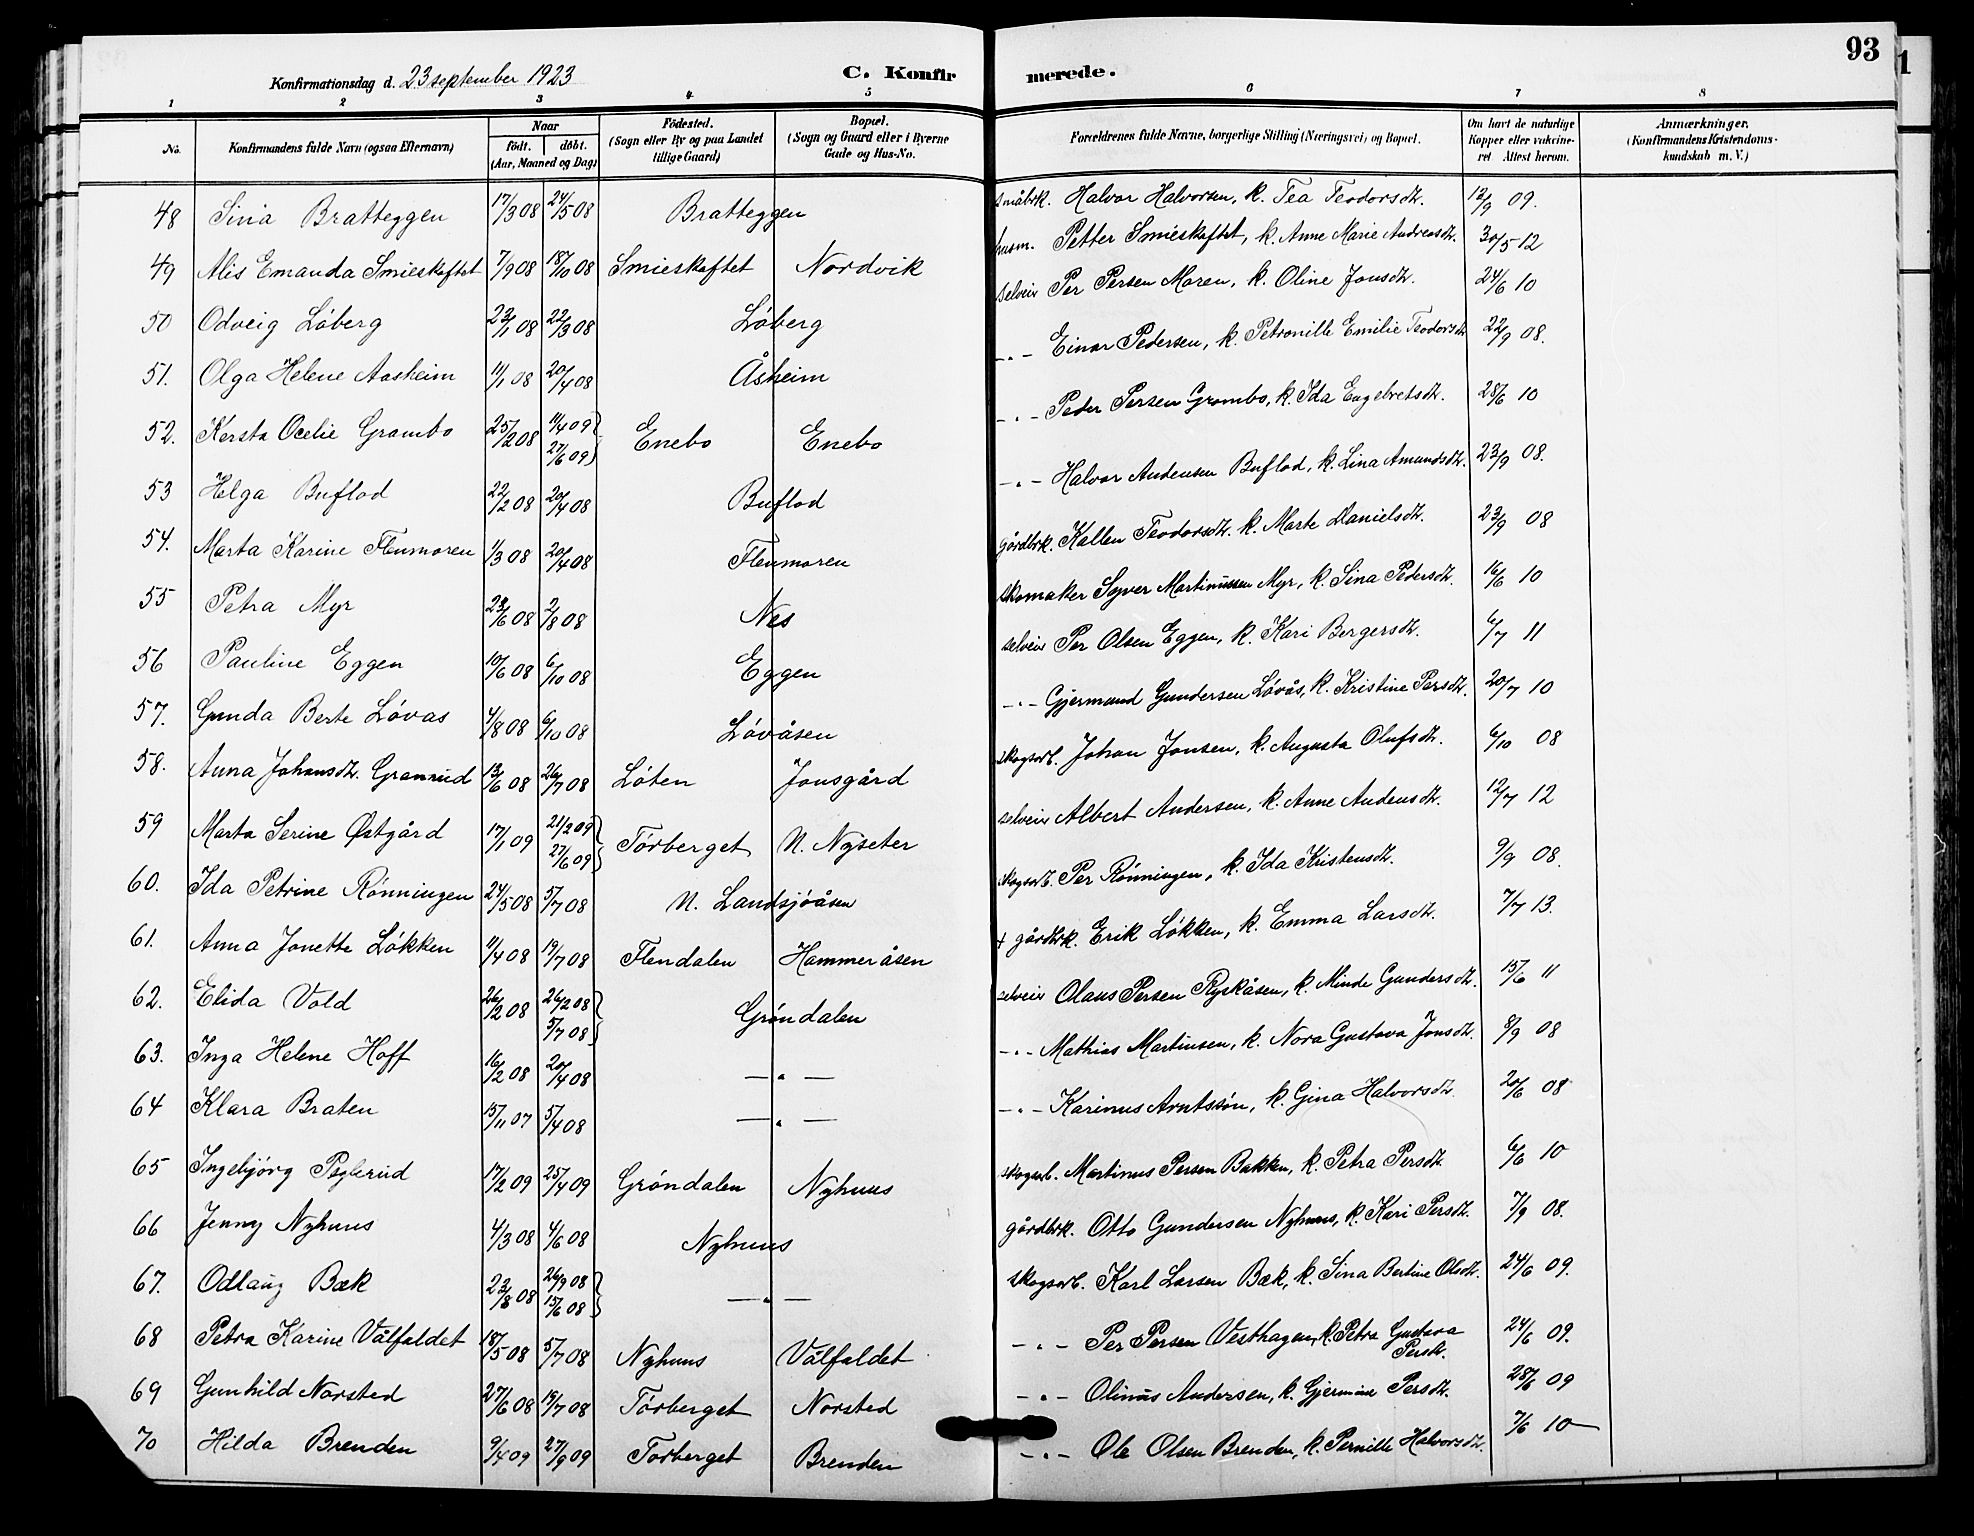 93
Konfirmationsdag d. 23 september 1923 C. Konfirmerede.
1 2 3 4 5 6 7 8
No. Konfirmandens fulde Navn (ogsaa Efternavn) Naar födt. döbt. (Aar, Maaned og Dag) Födested. (Sogn eller By og paa Landet tillige Gaard) Bopæl. (Sogn og Gaard eller i Byerne Gade og Hus-No. Forældrenes fulde Navne, borgerlige Stilling (Næringsvei) og Bopæl. Om havt de naturlige Kopper eller vakcineret Attest herom. Anmærkninger. (Konfirmandens Kristendomskundskab m. V.)
48 Sina Bratteggen 17/3 08 24/5 08 Bratteggen småbrk. Halvor Halvorsen, k. Tea Teodorsdt. 12/9 09.
49 Alis Emanda Smieskaftet 7/9 08 18/10 08 Smieskaftet Nordvik husm. Petter Smieskaftet, k. Anne Marie Andreasdt. 30/5 12
50 Odveig Löberg 23/1 08 22/3 08 Löberg selveier Per Persen Moren, k. Oline Jonsdt. 24/6 10
51. Olga Helene Aasheim 11/1 08 20/4 08 Åsheim -„- Einar Pedersen, k. Petronille Emilie Teodorsdt. 22/9 08.
52. Kersta Ocelie Grambo 25/2 08 11/4 09 27/6 09 Enebo Enebo -„- Peder Persen Grambo, k. Ida Engebretsdt. 28/6 10
53 Helga Buflod 22/2 08 20/4 08 Buflod -„- Halvor Andensen Buflod, k. Lina Amundsdt. 23/9 08.
54. Marta Karine Flenmoren 1/3 08 20/4 08 Flenmoren gårdbrk. Kallen Teodorsdt. k. Marte Danielsdt. 23/9 08
55 Petra Myr 23/6 08 2/8 08 Nes skomaker Syver Martinussen Myr, k. Sina Pedersdt. 16/6 10
56 Pauline Eggen 10/6 08 6/10 08 Eggen selveier Per Olsen Eggen, k. Kari Bergersdt. 6/7 11
57. Gunda Berte Lövas 4/8 08 6/10 08 Lövåsen -„- Gjermund Gundersen Lövås, k. Kristine Persdt. 20/7 10
58. Anna Johansdt. Granrud 13/6 08 26/7 08 Löten Jonsgård skogsarb. Johan Jonsen, k. Augusta Olufsdt. 6/10 08
59 Marta Serine Østgård 17/1 09 21/2 09 27/6 09 Törberget N. Nyseter selveier Albert Andersen, k. Anne Audensdt. 12/7 12
60. Ida Petrine Rönningen 24/5 08 5/7 08 N. Landsjöåsen skogsarb. Per Rønningen, k. Ida Kristensdt. 9/9 08.
61. Anna Jonette Lökken 11/4 08 19/7 08 Flendalen Hammeråsen + gårdbrk. Erik Lökken, k. Emma Larsdt. 7/7 13.
62. Elida Vold 26/2 08 26/2 08 5/7 08 Gröndalen selveier Olaus Persen Ryskåsen, k. Minda Gundersdt. 15/6 11
63. Inga Helene Hoff 16/2 08 20/4 08 -„- -„- Mathias Martinsen, k. Nora Gustava Jonsdt. 8/9 08
64 Klara Braten 15/11 07 5/4 08 -„- -„- Karinus Arntssön, k. Gina Halvorsdt. 20/6 08
65 Ingebjörg Poglerud 17/2 09 25/4 09 Gröndalen Nyhuus skogsarb. Martinus Persen Bakken, k. Petra Persdt. 6/6 10
66 Jenny Nyhuus 4/3 08 4/6 08 Nyhuus gårdbrk. Otto Gundersen Nyhuus, k. Kari Persdt. 7/9 08.
67. Odlaug Bæk 23/8 08 26/9 08 15/6 08 -„- skogsarb. Karl Larsen Bæk, k. Sina Bertine Olsdt. 24/6 09.
68 Petra Karine Vålfaldet 18/5 08 5/7 08 Nyhuus Vålfaldet -„- Per Persen Vesthagen, k. Petra Gustava Persdt. 24/6 09.
69 Gunhild Norsted 27/6 08 19/7 08 Törberget Norsted -„- Olinus Andersen, k. Gjermine Persdt. 28/6 09
70 Hilda Brenden 9/4 09 27/9 09 Törberget Brenden -„- Ole Olsen Brenden, k. Pernille Halvorsdt. 7/6 10